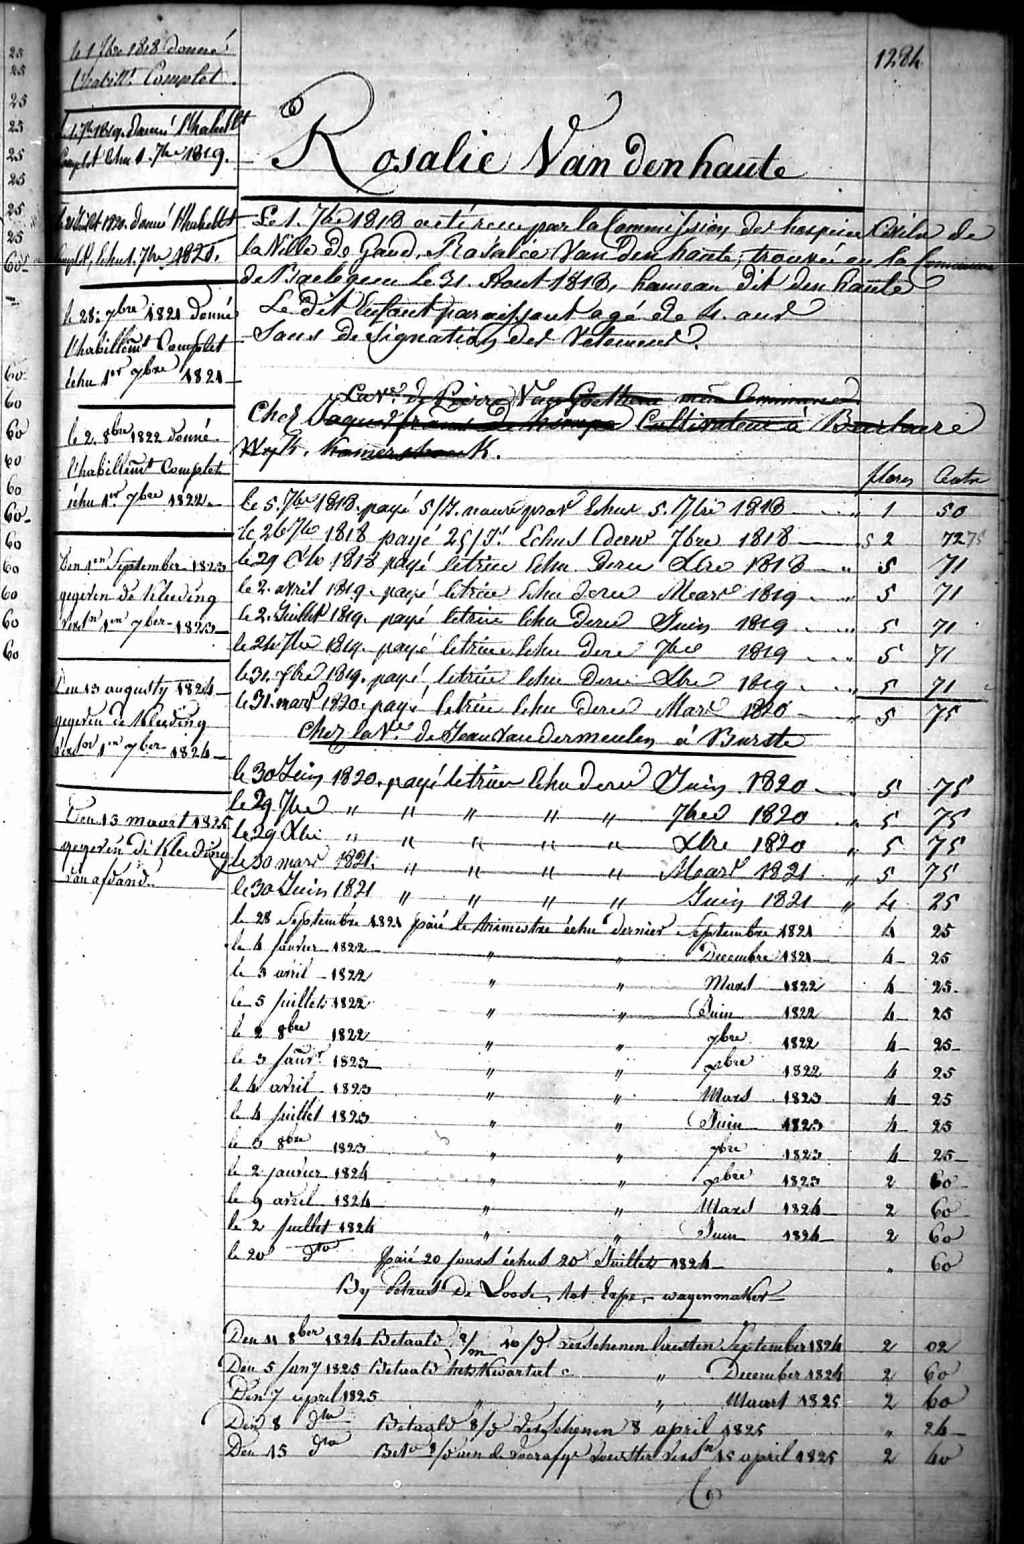 1284
le 1 7bre 1818 donné
l'habill.t Complet.
le 1. 7bre 1819. donné l'habillt
Complet Echu 1. 7bre 1819.
donné l'habillt
Complet, Echu 1. 7bre 1820.
le 28: 7bre 1821 donné
l'habillemt Complet
échu 1er 7bre 1821
le 2. 8bre 1822 donné
l'habillemt Complet
échu 1er 7bre 1822.
Den 1en September 1823
gegeven de Kleeding
1en 7ber 1823
Den 13 augusty 1824
gegeven de Kleeding
1en 7ber 1824
Den 13 maart 1825
gegeven de Kleeding
Rosalie Van den haute
Le 1. 7bre 1818 a été reçu par la Commission des hospices Civils de
la Ville de Gand, Rosalie Van den haute, trouvée en la Commune
de Baelegem le 31. Aout 1818, hameau dit den haute
Le dit Enfant paraissant agé de 4. ans
Sans designation des Vetements.
La Ve de Pierre Van même Commune
Chez Cultivateur à
flores Cents
le 5. 7bre 1818. payé 5/J. nourre prov Echus 5. 7bre 1818 " 1 50
le 26 7bre 1818 payé 25/J. Echus dern 7bre 1818 2 72
le 29 Xbre 1818 payé letrim Echu dern Xbre 1818 " 5 71
le 2. avril 1819. payé letrim Echu dern Mars 1819 " 5 71
le 2. Juillet 1819. payé letrim Echu dern Juin 1819 " 5 71
le 24 7bre 1819. payé letrim Echu dern 7bre 1819 " 5 71
le 31. Xbre 1819. payé letrim Echu dern Xbre 1819 " 5 71
le 31. mars 1820. payé letrim Echu dern Mars 1820 " 5 75
Chez la Ve de Jean Vandermeulen à Burste
le 30 Juin 1820. payé letrim Echu dern Juin 1820 5 75
le 29 7bre " " " " " 7bre 1820 " 5 75
le 29 Xbre " " " " " Xbre 1820 " 5 75
le 30 mars 1821. " " " " Mars 1821 " 5 75
le 30 Juin 1821 " " " " Juin 1821 " 4 25
le 28 Septembre 1821 paié le trimestre échu dernier Septembre 1821 4 25
le 4 janvier 1822 " " Decembre 1821 4 25
le 3 avril 1822 " " Mars 1822 4 25
le 5 juillet 1822 " " Juin 1822 4 25
le 2 8bre 1822 " " 7bre 1822 4 25
le 3 janvr 1823 " " xbre 1822 4 25
le 4 avril 1823 " " Mars 1823 4 25
le 4 juillet 1823 " " Juin 1823 4 25
le 3 8bre 1823 " " 7bre 1823 4 25
le 2 janvier 1824 " " xbre 1823 2 60
le 9 avril 1824 " " Mars 1824 2 60
le 2 juillet 1824 " " Juin 1824 2 60
le 20 dto paié 20 jours échus 20 Juillet 1824 " 60
By Petrus De Loose, tot Erpe, wagenmaker
Den 11 8ber 1824 Betaald 70/d. verschenen lesten September 1824 2 02
Den 5 jany 1825 Betaald het Kwartal " December 1824 2 60
Den 7 april 1825 " " Maart 1825 2 60
Den 8 dto Betaald 8/d verschenen 8 april 1825 " 24
Den 15 dto 15 april 1825 2 40
25
25
25
25
25
25
25
25
60
60
60
60
60
60
60
60
60
60
60
60